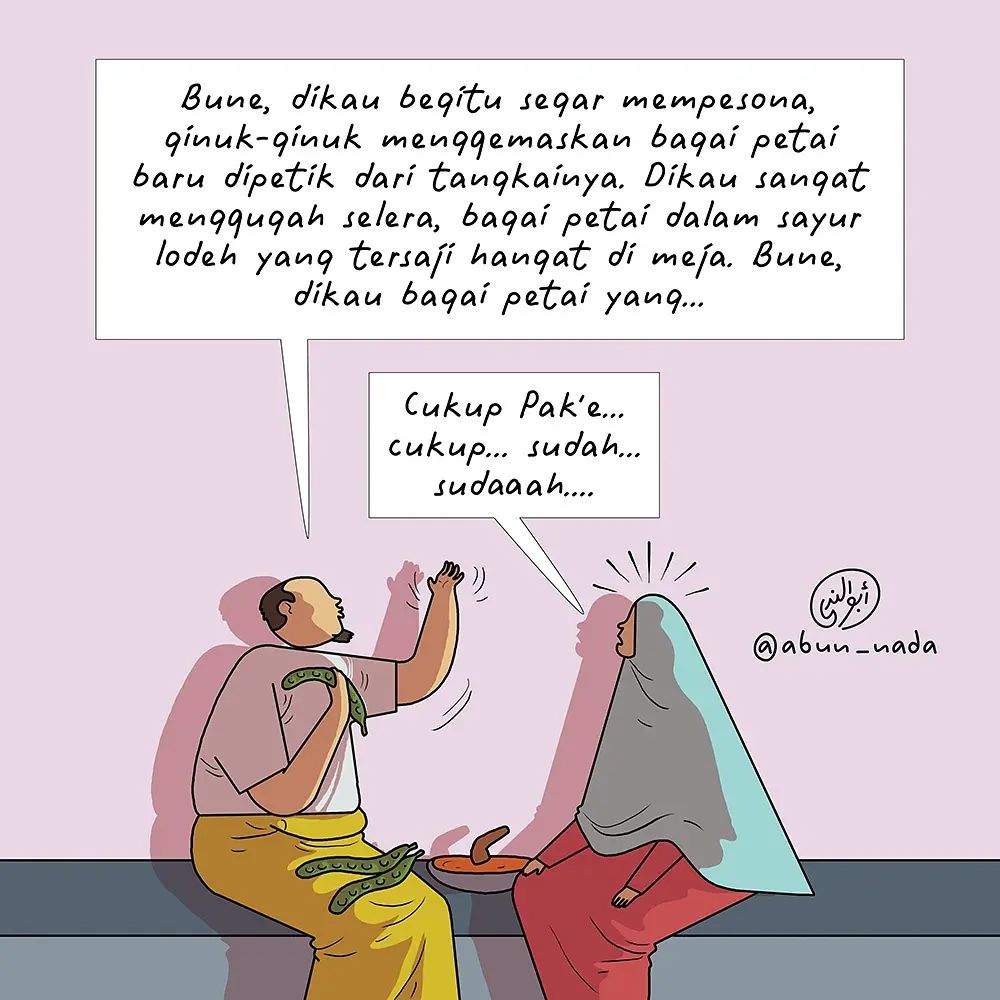 Bune, dikau begitu segar mempesona,
ginuk-ginuk menggemaskan bagai petai
baru dipetik dari tangkainya. Dikau sangat
menggugah selera, bagai petai dalam sayur
lodeh yang tersaji hangat di meja. Bune,
dikau bagai petai yang...
Cukup Pak'e...
cukup... sudah...
sudaaah....
أبو الندى
@abun_nada